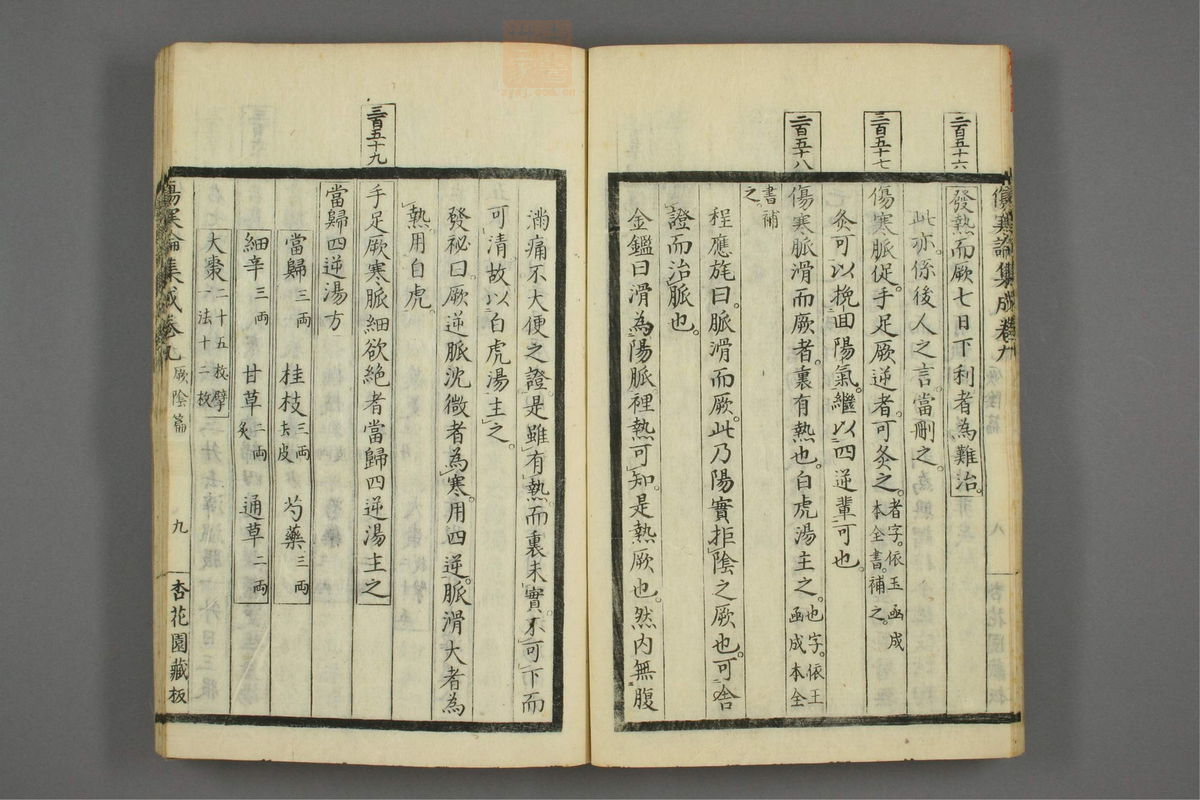 傷寒論集成卷九
厥陰篇
八
杏花園藏板
三百五十六
發熱而厥七日下利者為難治
此亦係後人之言當刪之
三百五十七
傷寒脈促手足厥逆者可灸之者字依玉函成本全書補之
灸可以挽回陽氣繼以四逆輩可也
三百五十八
傷寒脈滑而厥者裏有熱也白虎湯主之也字依玉函成本全
書補之
程應旄曰脈滑而厥此乃陽實拒陰之厥也可舍
證而治脈也
金鑑曰滑為陽脈裡熱可知是熱厥也然內無腹
滿痛不大便之證是雖有熱而裏未實不可下而
可清故以白虎湯主之
發秘曰厥逆脈沈微者為寒用四逆脈滑大者為
熱用白虎
三百五十九
手足厥寒脈細欲絕者當歸四逆湯主之
當歸四逆湯方
當歸三兩 桂枝三兩去皮 芍藥三兩
細辛三兩 甘草二兩炙 通草二兩
大棗二十五枚擘一法十二枚
傷寒論集成卷九
厥陰篇
九
杏花園藏板